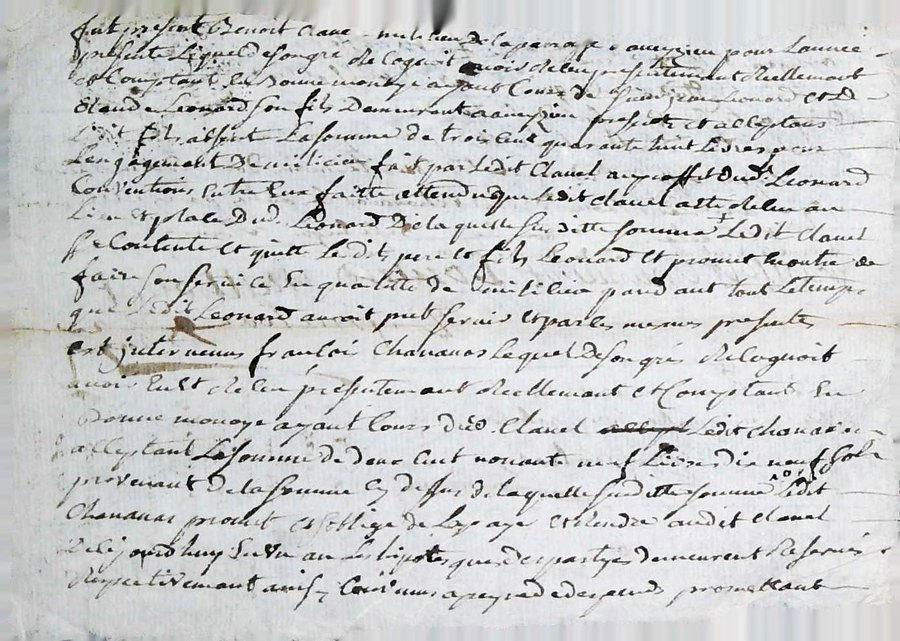 fut present Benoit Clauel milicien de la parroisse pour l'annee
presente lequel de son gré recognoit avoir receu presentement reellement
et comptant en bonne monoye ayant cours de Leonard et
Claude Leonard son fils demeurant a presents et acceptans
ledit fils absent la somme de trois cent quarante huit livres pour
l'engagement de milicien fait par ledit Clauel au proffit dud. Leonard
conventions entre eux faitte attendu que ledit Clauel a esté receu au
lieu et place dud. Leonard de laquelle susditte somme ledit Clauel
se contente et quitte lesdits pere et fils Leonard et promet de
faire son service en qualitte de milicien pandant tout le temps
que ledit Leonard auroit peut servir et par les memes presentes
est intervenus francois Chananas lequel de son gré recognoit
avoir eu et receu présentemant reellemant et comptant en
bonne monoye ayant cours dud. Clauel ledit Chananas
acceptant la somme de deux cent nonante neuf livres dix neuf sols
provenant de la somme cy dessus de laquelle susditte somme ledit
Chananas promet et s'oblige de la payer et rendre audit Clauel
de ce jourdhuy en un an les hipoteques des partyes demeurent reservés
respectivemant ainsy convenus a peyne de despends promettant